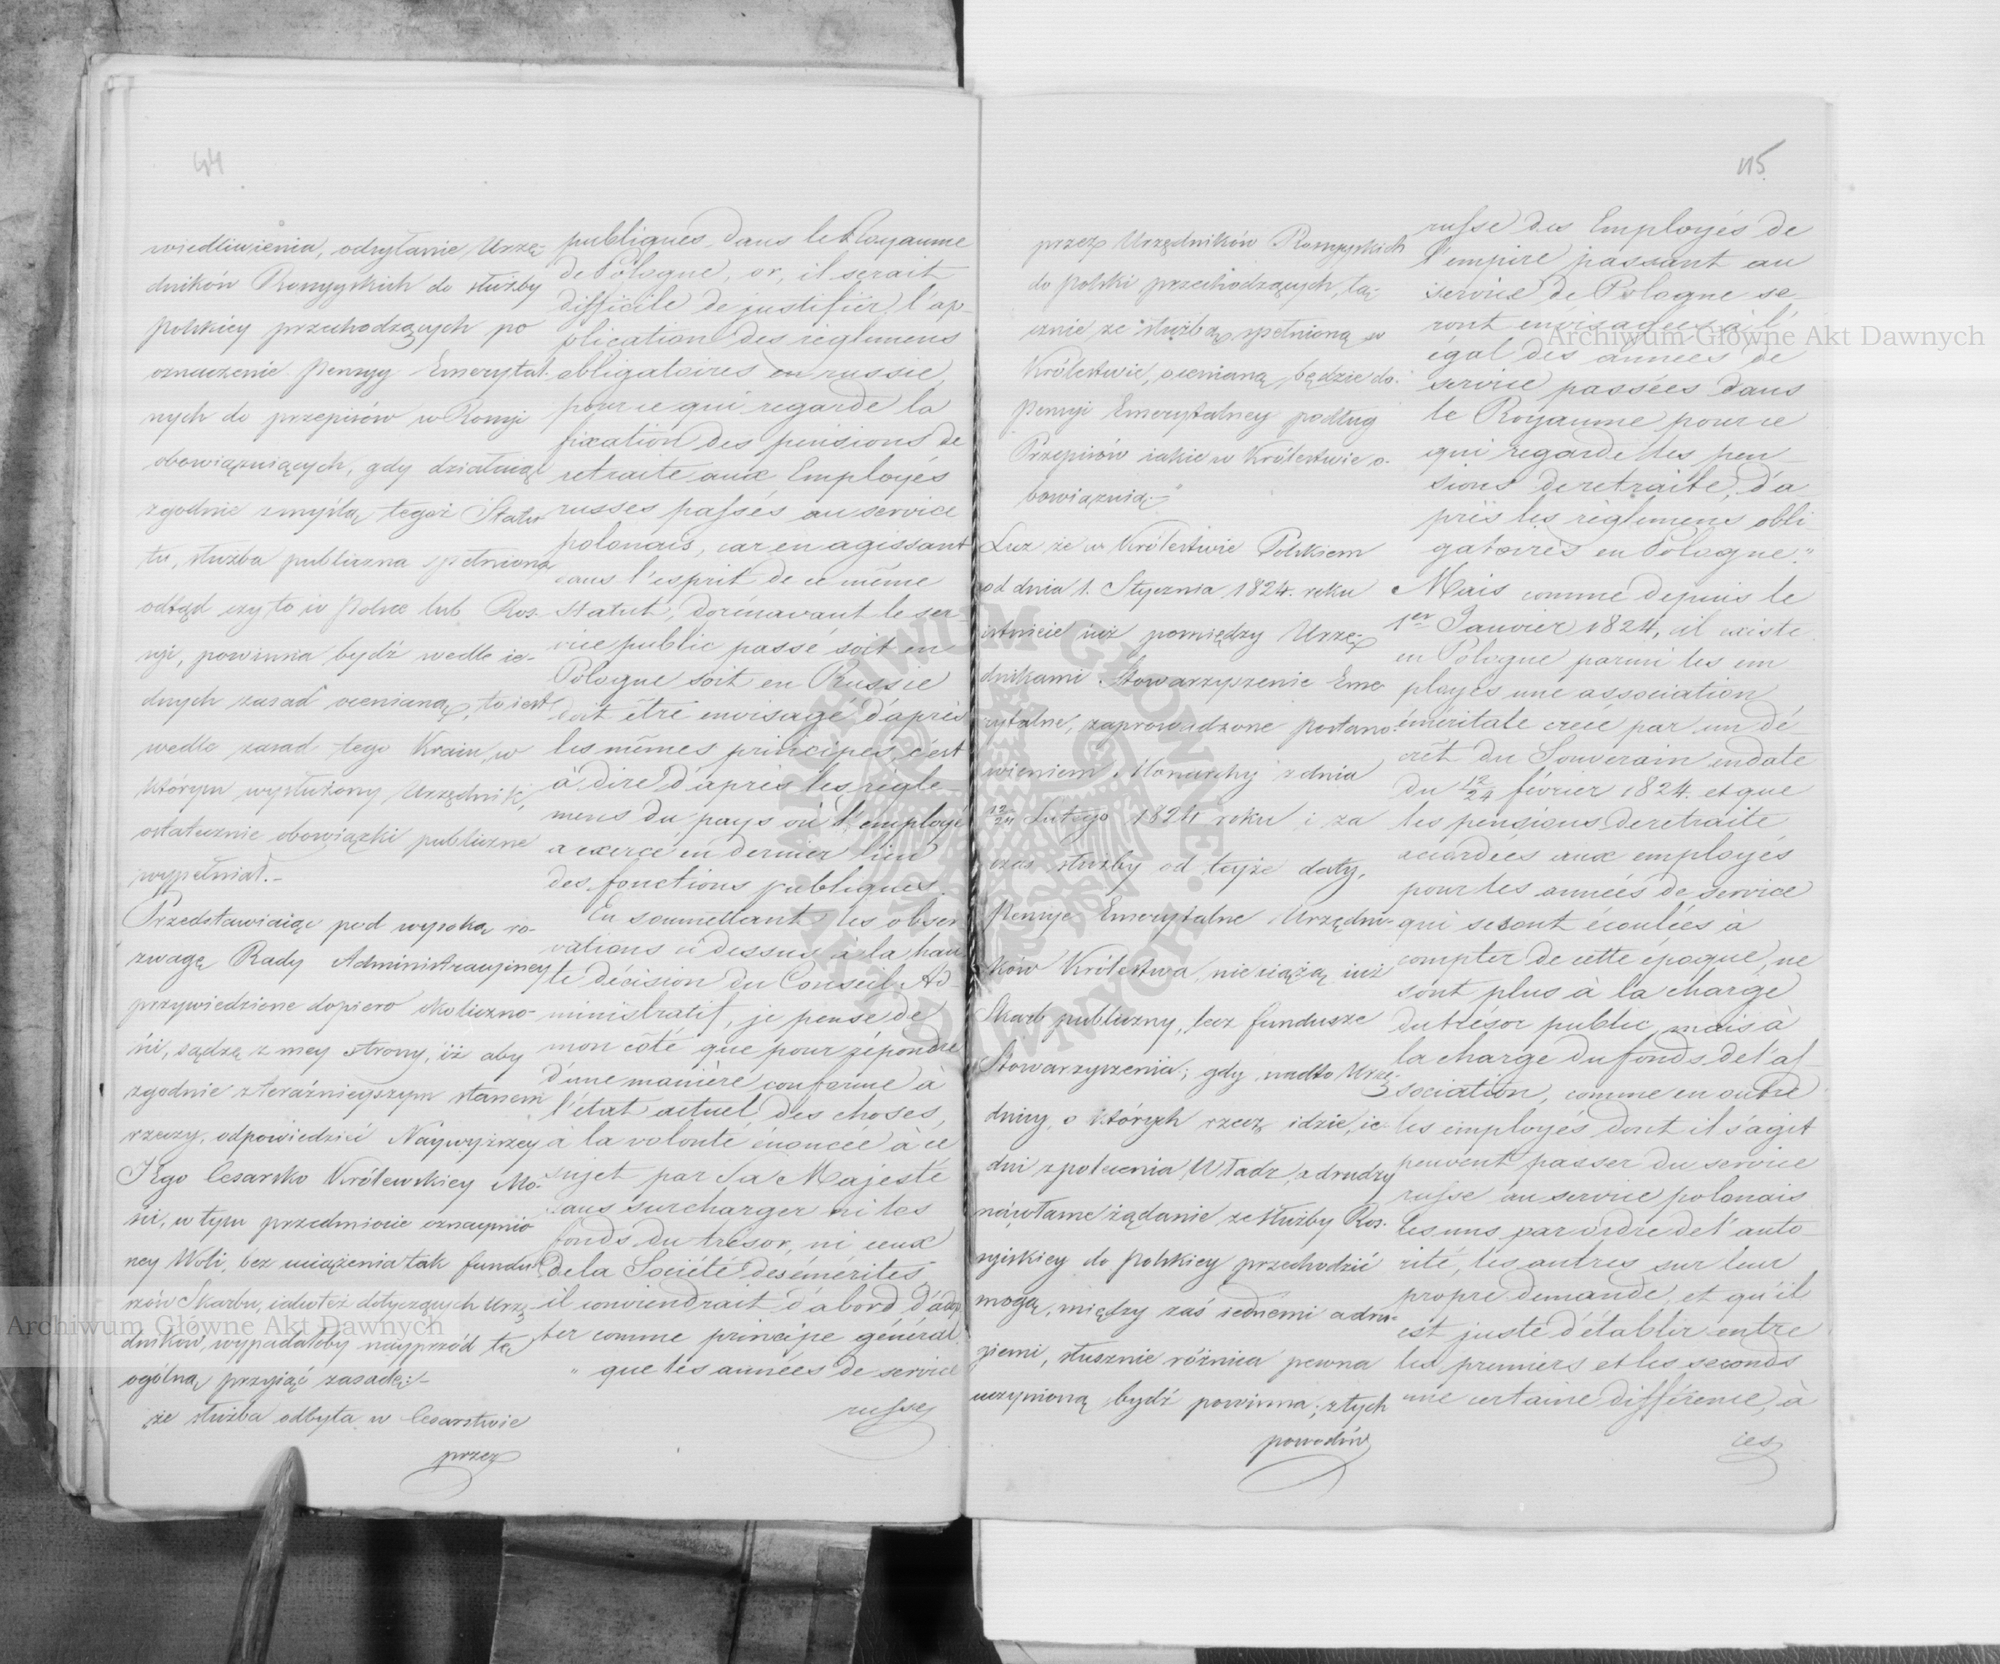 44
wiedliwienia, odsyłanie Urzę-
dników Rossyyskich do służby
Polskiey przechodzących po
oznaczenie Pensyy Emerytal-
nych do przepisów w Rossyi
obowiązuiących, gdy działaiąc
zgodnie z myślą tegoż Statu
tu, służba publiczna spełniona
odtąd czy to w Polsce lub Ros-
syi, powinna bydź wedle ie-
dnych zasad ocenianą, to iest
wedle zasad tego Kraiu, w
którym wysłużony Urzędnik,
ostatecznie obowiązki publiczne
wypełniał.-
Przedstawiaiąc pod wysoką ro-
zwagę Rady Administracyiney
przywiedzione dopiero okoliczno-
ści, sądzę z mey strony, iż aby
zgodnie z teraźnieyszym stanem
rzeczy, odpowiedzieć Naywyższey
JEgo Cesarsko Królewskiey Mo-
ści, w tym przedmiocie oznaymio
ney Woli, bez uciążenia tak fundu
szów Skarbu, iako też dotyczących Urzę
dników, wypadałoby nayprzód tę
ogólną przyiąć zasadę:-
że służba odbyta w Cesarstwie
przez
publiques dans le Royaume
de Pologne, or, il serait
difficile de justifier l'ap-
plication des règlemens
obligatoires en russie,
pour ce qui regarde la
fixation des pensions de
retraite aux Employés
russes passés au service
polonais, car en agissant
dans l'esprit de ce même
Statut, dorénavant le ser-
vice public passé, soit en
Pologne soit en Russie
doit être envisagé d'après
les mêmes principes, c'est
à dire d'après les règle-
mens du pays où l'employé
a exercé en dernier lieu
des fonctions publiques.
En soumettant les obser
vations ci dessus à la hau
te décision du Conseil Ad-
ministratif, je pense de
mon côté que pour répondre
d'une manière conforme à
l'état actuel des choses,
à la volonté énoncée à ce
sujet par Sa Majesté
sans surcharger ni les
fonds du trésor, ni ceux
de la Société des émérites,
il conviendrait d'abord d'adop
ter comme principe général
" que les années de service
russe
115.
przez Urzędników Rossyyskich
do Polski przechodzących, łą-
cznie ze służbą spełnioną w
Królestwie, ocenianą będzie do
Pensyi Emerytalney podług
Przepisów iakie w Królestwie o-
bowiązuią.-"
Lecz że w Królestwie Polskiem
od dnia 1. Stycznia 1824. roku
istnieie iuż pomiędzy Urzę-
dnikami Stowarzyszenie Eme-
rytalne, zaprowadzone postano-
wieniem Monarchy z dnia
12/24 Lutego 1824 roku i za
czas służby od teyże daty,
Pensye Emerytalne Urzędni-
ków Królestwa, nie ciążą iuż
Skarb publiczny, lecz fundusze
Stowarzyszenia; gdy nadto Urzę-
dnicy, o których rzecz idzie, ie-
dni z polecenia Władz, a drudzy
na własne żądanie ze służby Ros-
syiskiey do Polskiey przechodzić
mogą, między zaś iednemi a dru-
giemi, słusznie różnica pewna
uczynioną bydź powinna; z tych
powodów
russe des Employés de
l'empire passant au
service de Pologne se-
ront envisagées à l'
égal des années de
service passées dans
le Royaume pour ce
qui regarde les pen
sions de retraite, d'a
près les règlemens obli
gatoires en Pologne."
Mais comme depuis le
1er Janvier 1824, il existe
en Pologne parmi les em
ployés une association
éméritale créé par un dé-
crêt du Souverain en date
du 12/24 février 1824. et que
les pensions de retraite
accordées aux employés
pour les années de service
qui se sont écoulées à
compter de cette époque, ne
sont plus à la charge
du trésor public, mais à
la charge du fonds de l'as
sociation, comme en outre
les employés dont il s'agit
peuvent passer du service
russe au service polonais
les uns par ordre de l'auto-
rité, les autres sur leur
propre demande, et qu'il
est juste d'établir entre
les premiers et les seconds
une certaine différence, à
ces
Archiwum Główne Akt Dawnych
Archiwum Główne Akt Dawnych
ARCHIWUM GŁÓWNE AKT DAWNYCH